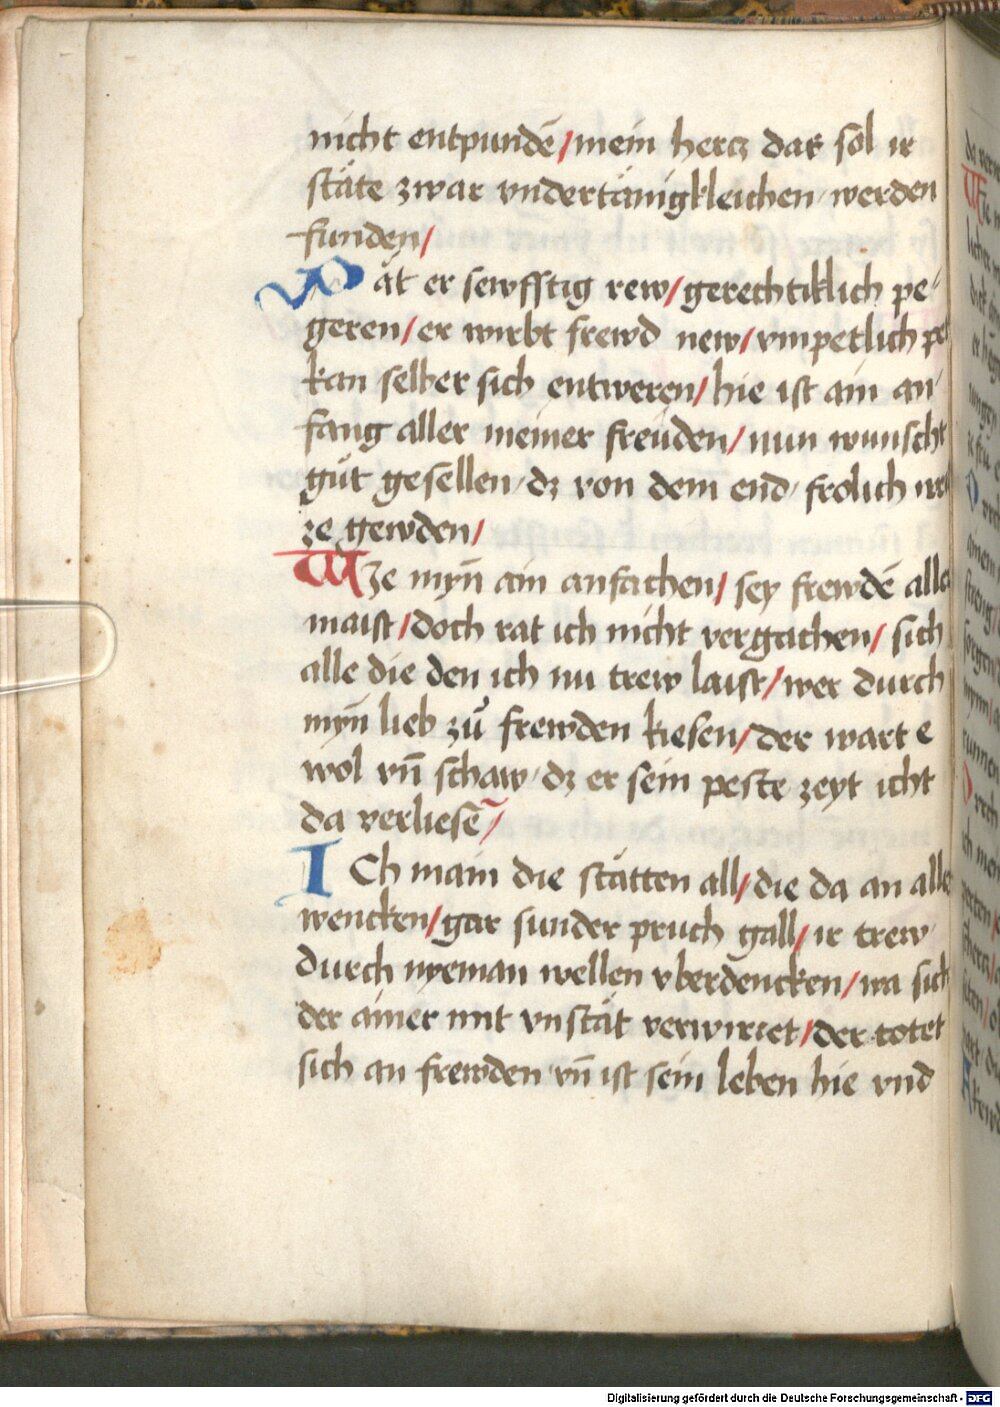 nicht entpundē/mein hercz dar sol ir
stäte zwar vndertänigkleichen werden
funden/
Wät er sewfftig rew/gerechtiklich pe⸗
geren/er wirbt frewd new/vmpetlich
kan selber sich entweren/hie ist ain an⸗
fang aller meiner freüden/nun wunscht
güt gesellen dz von dem end frolich
ze gewden/
Wze myñ ain anfachen/sey frewdē alle
maist/doch rat ich nicht vergachen/sich
alle die den ich nu trew laist/wer durch
myñ lieb zů frewden kiesen/der wart e
wol vñ schaw dz er sein peste zeyt icht
da verliesē/
ICh main die stätten all/die da an alle
wencken/gar sunder pruch gall/ir trew
durch nyeman wellen vberdencken/wa sich
der ainer mit vnstät verwirret/der totet
sich an frewden vñ ist sein leben hie vnd
Digitalisierung gefördert durch die Deutsche Forschungsgemeinschaft - DFG